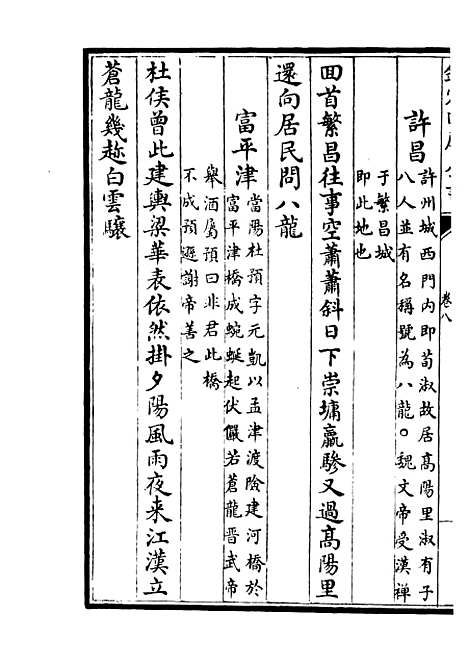 卷八
許昌
許州城西門内即荀淑故居髙陽里淑有子
八人並有名稱號為八龍○魏文帝受漢禪
于繁昌城
即此地也
回首繁昌往事空蕭蕭斜日下崇墉羸驂又過髙陽里
還向居民問八龍
富平津
當陽杜預字元凱以孟津渡險建河橋於
富平津橋成蜿蜒起伏儼若蒼龍晋武帝
舉酒屬預曰非君此橋
不成預遜謝帝善之
杜侯曾此建輿梁華表依然掛夕陽風雨夜来江漢立
蒼龍幾趂白雲驤